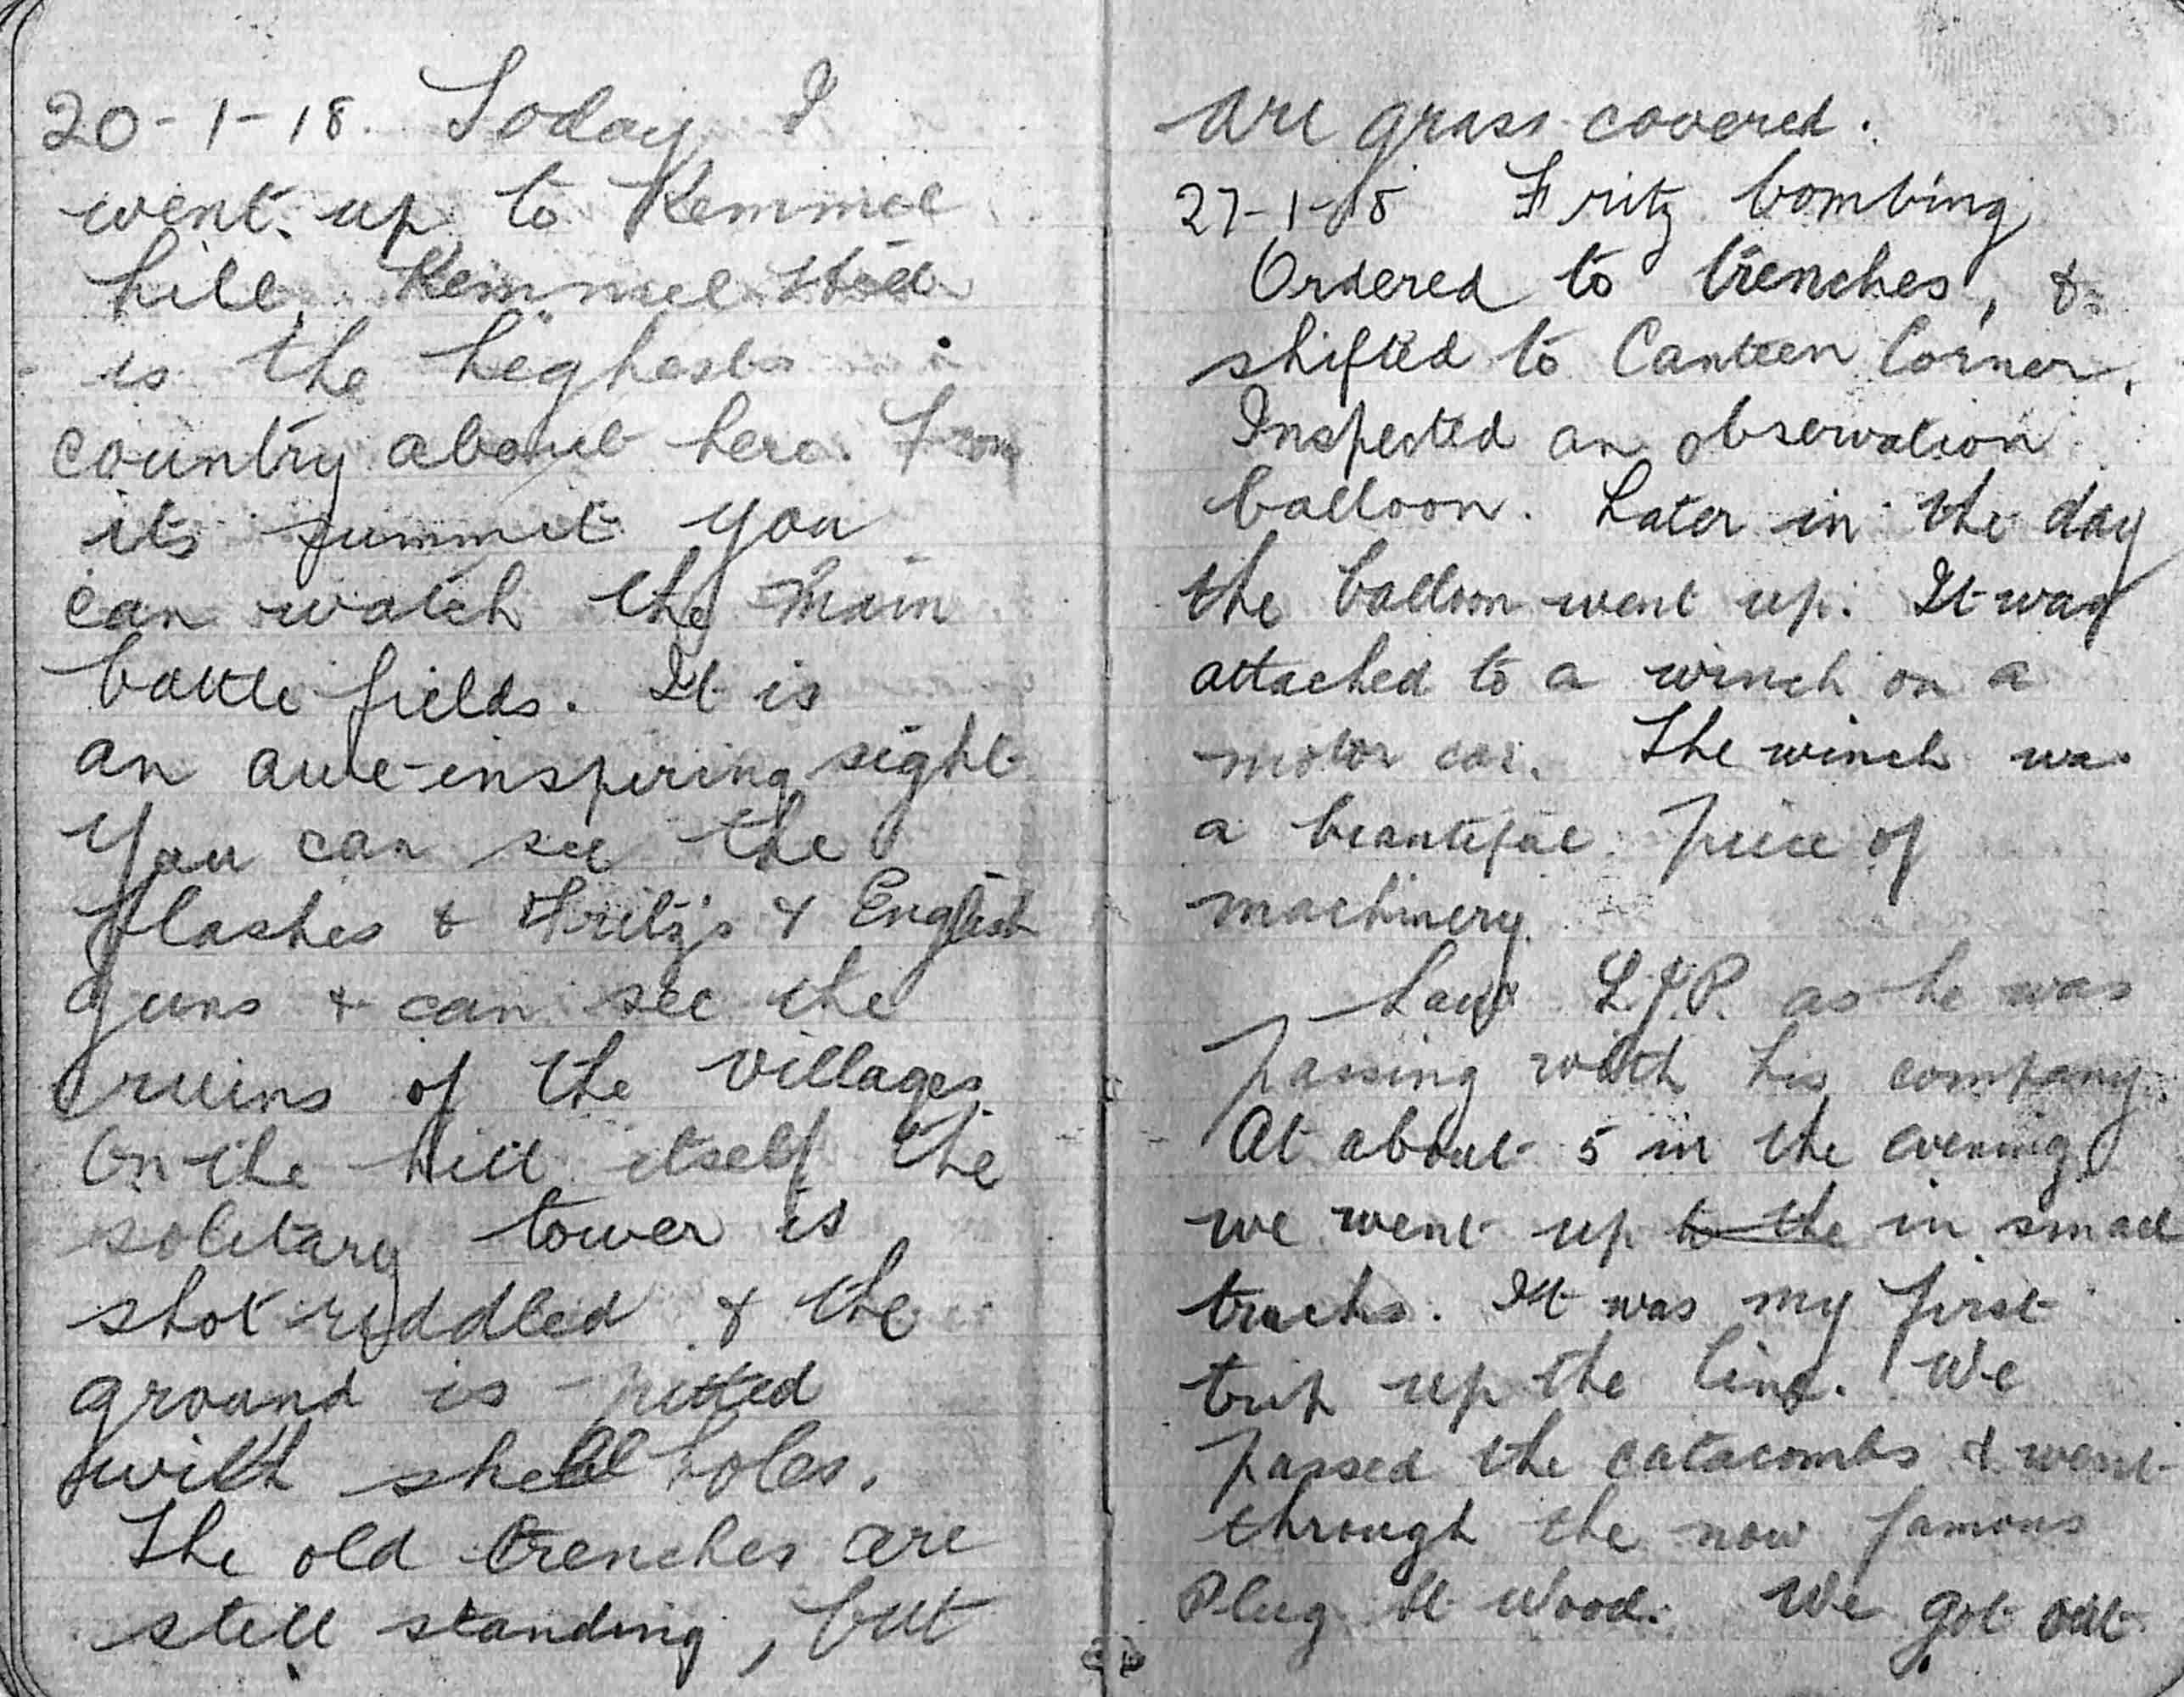 20-1-18. Today I
went up to Kemmel
hill. Kemmel Hill
is the heghests
country about here. From
its summit you
can watch the main
battle fields. It is
an awe-inspiring sight
You can see the
flashes & Fritz's & English
guns & can see the
ruins of the villages.
On the hill itself the
solitary tower is
shot riddled & the
ground is pitted
with shell holes.
The old trenches are
still standing, but
are grass covered.
27-1-18 Fritz bombing
Ordered to trenches, &
shifted to Canteen Corner.
Inspected an observation
balloon. Later in the day
the balloon went up. It was
attached to a winch on a
motor car. The winch was
a beautiful piece of
machinery.
Saw L.J.P. as he was
passing with his company.
At about 5 in the evening
we went up to the in small
trucks. It was my first
trip up the line. We
passed the catacombs & went
through the now famous
Plug St Wood. We got out